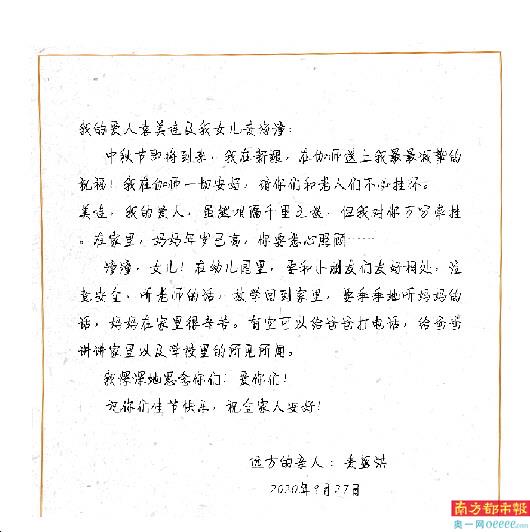 我的爱人袁美连及我女儿麦海潼:
中秋节即将到来,我在新疆,在伽师送上我最最诚挚的
祝福!我在伽师一切安好,请你们和老人们不必挂怀。
美连,我的爱人,虽然相隔千里之遥,但我对你万分牵挂
。在家里,妈妈年岁已高,你要悉心照顾……
潼潼,女儿!在幼儿园里,要和小朋友们友好相处,注
意安全,听老师的话,放学回到家里,要乖乖地听妈妈的
话,妈妈在家里很辛苦。有空可以给爸爸打电话,给爸爸
讲讲家里以及学校里的所见所闻。
我深深地思念你们!爱你们!
祝你们佳节快乐,祝全家人安好!
远方的亲人:麦
2020年9月27日
南方都市报
奥一网oeeee.com